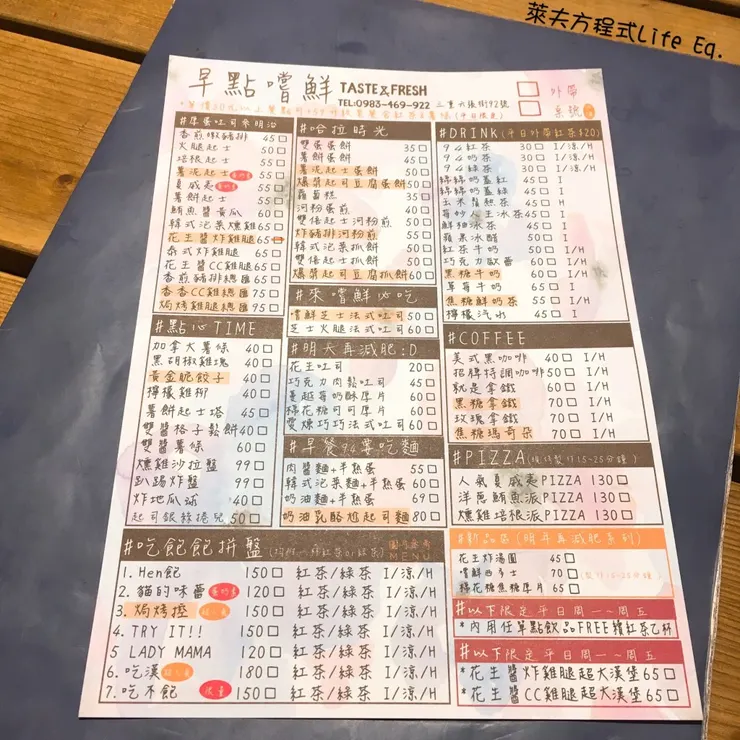 萊夫方程式Life Eq.
早點嚐鮮 TASTE&FRESH
TEL:0983-469-922 三重六張街92號
外帶
桌號
#厚蛋吐司來明治
香煎嫩豬排 45
火腿起士 50
培根起士 55
薯泥起士 55
夏威夷 55
薯餅起士 55
鮪魚醬黃瓜 60
韓式泡菜燻雞 65
花生醬炸雞腿 65
泰式炸雞腿 65
花生醬CC雞腿 65
香煎豬排總匯 65
香香CC雞總匯 95
焗烤雞腿總匯 75
#點心TIME
加拿大薯條 40
黑胡椒雞塊 40
黃金脆餃子 40
檸檬雞柳 40
薯餅起士塔 45
雙醬格子鬆餅 40
雙醬薯條 60
燻雞沙拉盤 99
趴踢炸盤 99
炸地瓜 40
起司銀絲捲兒 50
#哈拉時光
雙蛋蛋餅 35
薯餅蛋餅 45
薯泥起士蛋餅 50
爆漿起司豆腐蛋餅 50
蘿蔔糕 35
河粉蛋煎 40
雙倍起士河粉煎 50
炸豬排河粉煎 55
韓式泡菜抓餅 50
雙倍起士抓餅 60
爆漿起司豆腐抓餅 60
#來嚐鮮必吃
嚐鮮芝士法式吐司 50
芝士火腿法式吐司 60
#明天再減肥:D
花生吐司 20
巧克力肉鬆吐司 45
蔓越莓奶酥厚片 60
棉花糖可可厚片 60
雙燻巧巧法式吐司 60
#早餐94要吃麵
肉醬麵+半熟蛋 55
韓式泡菜麵+半熟蛋 60
奶油麵+半熟蛋 60
奶油乳酪焗起司麵 80
#DRINK(平日外帶紅茶$20)
94紅茶 30 I/涼/H
94奶茶 30 I/涼/H
94綠茶 30 I/涼/H
綿綿奶蓋紅 45 I
綿綿奶蓋綠 45 I
玉米濃湯 H
鮮柚冰茶 45 I
蘋果冰醋 45 I
紅茶牛奶 50 I/H
巧克力歐蕾 60 I/H
黑糖牛奶 60 I/H
草莓牛奶 65 I
焦糖鮮奶茶 55 I/H
檸檬汽水 45 I
#COFFEE
美式黑咖啡 40 I/H
招牌特調咖啡 50 I/H
就是拿鐵 60 I/H
黑糖拿鐵 70 I/H
玫瑰拿鐵 70 I/H
焦糖瑪奇朵 70 I/H
#PIZZA(現點製作15~25分鐘)
人氣夏威夷PIZZA 130
洋蔥鮪魚派PIZZA 130
燻雞培根派PIZZA 130
#新品區(明年再減肥系列)
花生炸湯圓 45
嚐鮮西多士 70
棉花糖焦糖厚片 65
#以下限定平日周一~周五
*內用任單點飲品FREE糯紅茶乙杯
#以下限定平日周一~周五
*花生醬炸雞腿超大漢堡 65
*花生醬CC雞腿超大漢堡 65
#吃飽飽拼盤
圖片參考MENU
1. Hen飽 150 紅茶/綠茶 I/涼/H
2. 貓的味蕾 120 紅茶/綠茶 I/涼/H
3. 焗烤控 150 紅茶/綠茶 I/涼/H
4. TRY IT!! 150 紅茶/綠茶 I/涼/H
5 LADY MAMA 120 紅茶/綠茶 I/涼/H
6. 吃漢 180 紅茶/綠茶 I/涼/H
7. 吃不飽 限量 150 紅茶/綠茶 I/涼/H